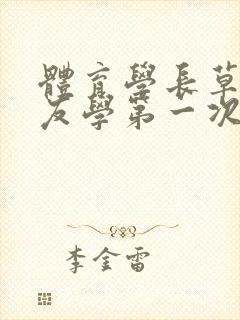 體育學長草
友學第一次
李金雷